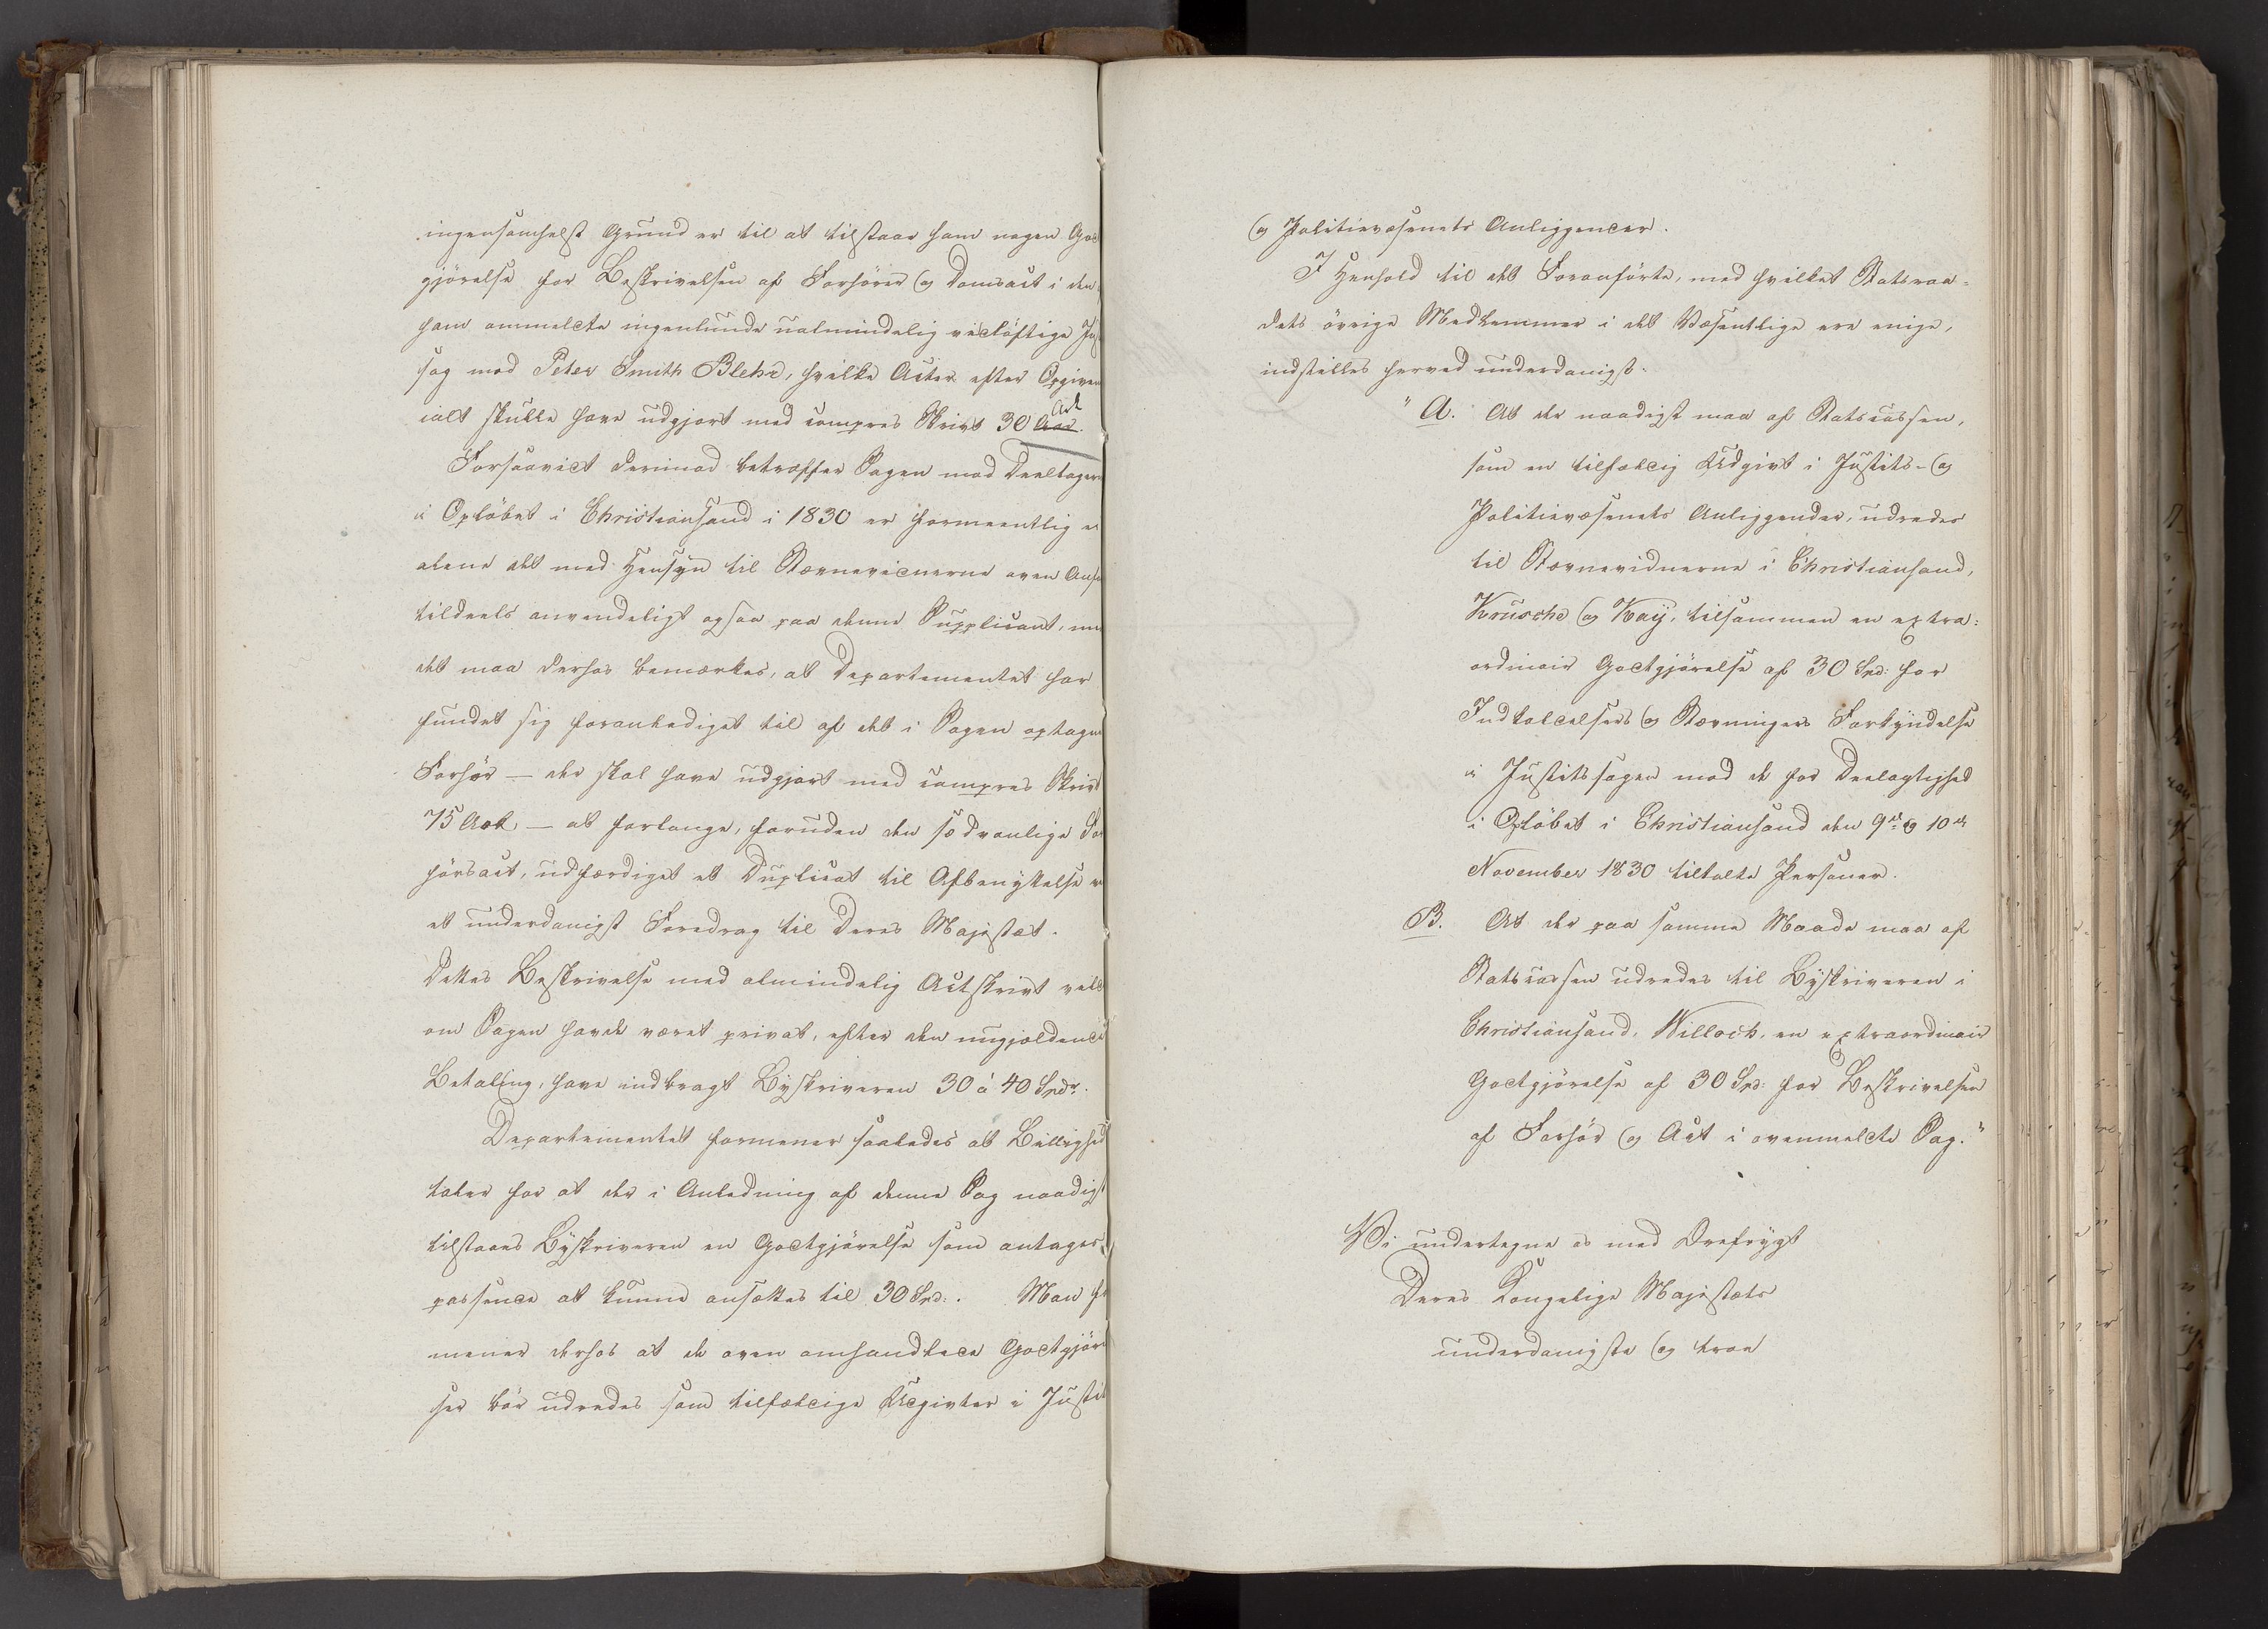 ingensomhelst Grund er til at tilstaae ham nogen God
gjörelse for Beskrivelsen af Forhörer og Domsact i den
ham ommeldte ingenlunde ualmindelig vidtløftige Ju
sag mod Peter Smith Blehr, hvilke Acter efter Opgiven
ialt skulle have udgjort med compres Skrivt 30 Ark
Forsaavidt derimod betræffer Sagen mod Deeltager
i Oplöbet i Christiansand i 1830 er formeentlig e
alene det med Hensyn til Stævnevidnerne oven Anf
tildeels anvendeligt ogsaa paa denne Supplicant, me
det maa derhos bemærkes, at Departementet har
fundet sig foranlediget til af det i Sagen optagne
Forhör — der skal have udgjort med compres Skrivt
75 Ark — at forlange, foruden den sædvanlige Fo
hörsact, udfærdiget et Duplicat til Afbenyttelse v
et underdanigst Foredrag til Deres Majestæt.
Dettes Beskrivelse med almindelig Actskrivt vild
om Sagen havde været privat, efter den nugjældende
Betaling, have indbragt Byskriveren 30 à 40 Spdr.
Departementet formener saaledes at Billighed
taler for at der i Anledning af denne Sag naadigst
tilstaaes Byskriveren en Godtgjörelse som antages
passende at kunne ansættes til 30 Spd:. Man fo
mener derhos at de oven omhandlede Godtgjöre
ser bör udredes som tilfældige Udgivter i Justit
og Politievæsenets Anliggender.
I Henhold til det Foranførte, med hvilket Statsraa=
dets övrige Medlemmer i det Væsentlige ere enige,
indstilles herved underdanigst:
" A. At der naadigst maa af Statscassen,
som en tilfældig Udgivt i Justits- og
Politievæsenets Anliggender, udredes
til Stævnevidnerne i Christiansand,
Krusche og Kaij, tilsammen en extra=
ordinair Godtgjörelse af 30 Spd: for
Indkaldelsers og Stævningers Forkyndelse
i Justitssagen mod de for Deelagtighed
i Oplöbet i Christiansand den 9de og 10de
November 1830 tiltalte Personer.
B. At der paa samme Maade maa af
Statscassen udredes til Byskriveren i
Christiansand, Willoch, en extraordinair
Godtgjörelse af 30 Spd: for Beskrivelsen
af Forhör og Act i ovenmeldte Sag."
Vi undertegne os med Ærefrygt
Deres Kongelige Majestæts
underdanigste og troe